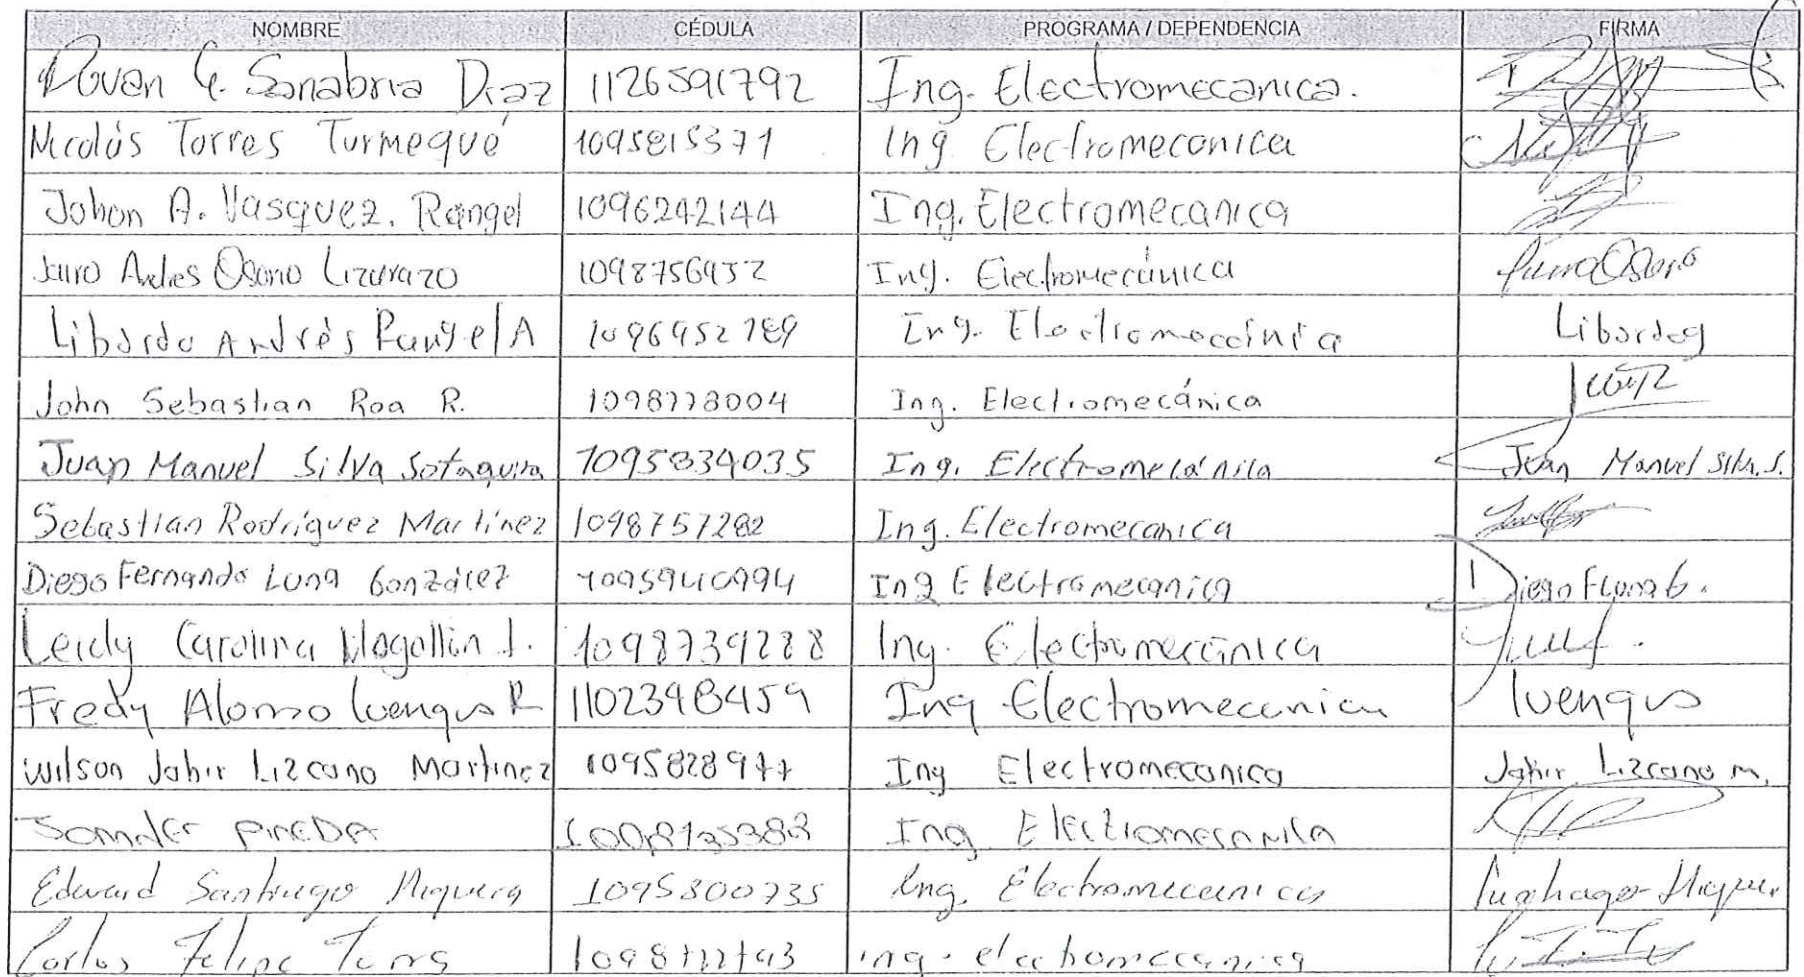 NOMBRE CÉDULA PROGRAMA / DEPENDENCIA FIRMA
Duvan G. Sanabria Diaz 1126591792 Ing. Electromecanica.
Nicolás Torres Turmequé 1095815371 Ing Electromecanica
Johon A. Vasquez. Rangel 1096242144 Ing. Electromecanica
Jairo Andres Osorio Lizarazo 1098756952 Ing. Electromecánica
Libardo Andrés Rangel A 1096952789 Ing. Electromecánica Libardog
John Sebastian Roa R. 1098778004 Ing. Electromecánica
Juan Manuel Silva Sotaquira 1095834035 Ing. Electromecánica Juan Manuel Silva. S.
Sebastian Rodriguez Martinez 1098757282 Ing. Electromecanica
Diego Fernando Luna González 1095940994 Ing Electromecanica Diego FLuna G.
Leidy Carolina Mogollón J. 1098739288 Ing. Electromecánica
Fredy Alonso Luengus R 1102348459 Ing Electromecanica luengus
Wilson Jahir Lizcano Martinez 1095828977 Ing Electromecanica Jahir Lizcano M.
PINEDA Ing Electromecanica
Edward Santiago Higuera 1095800735 Ing. Electromecanica Santiago Higuera
Carlos Felipe Torres ing. electromecanica